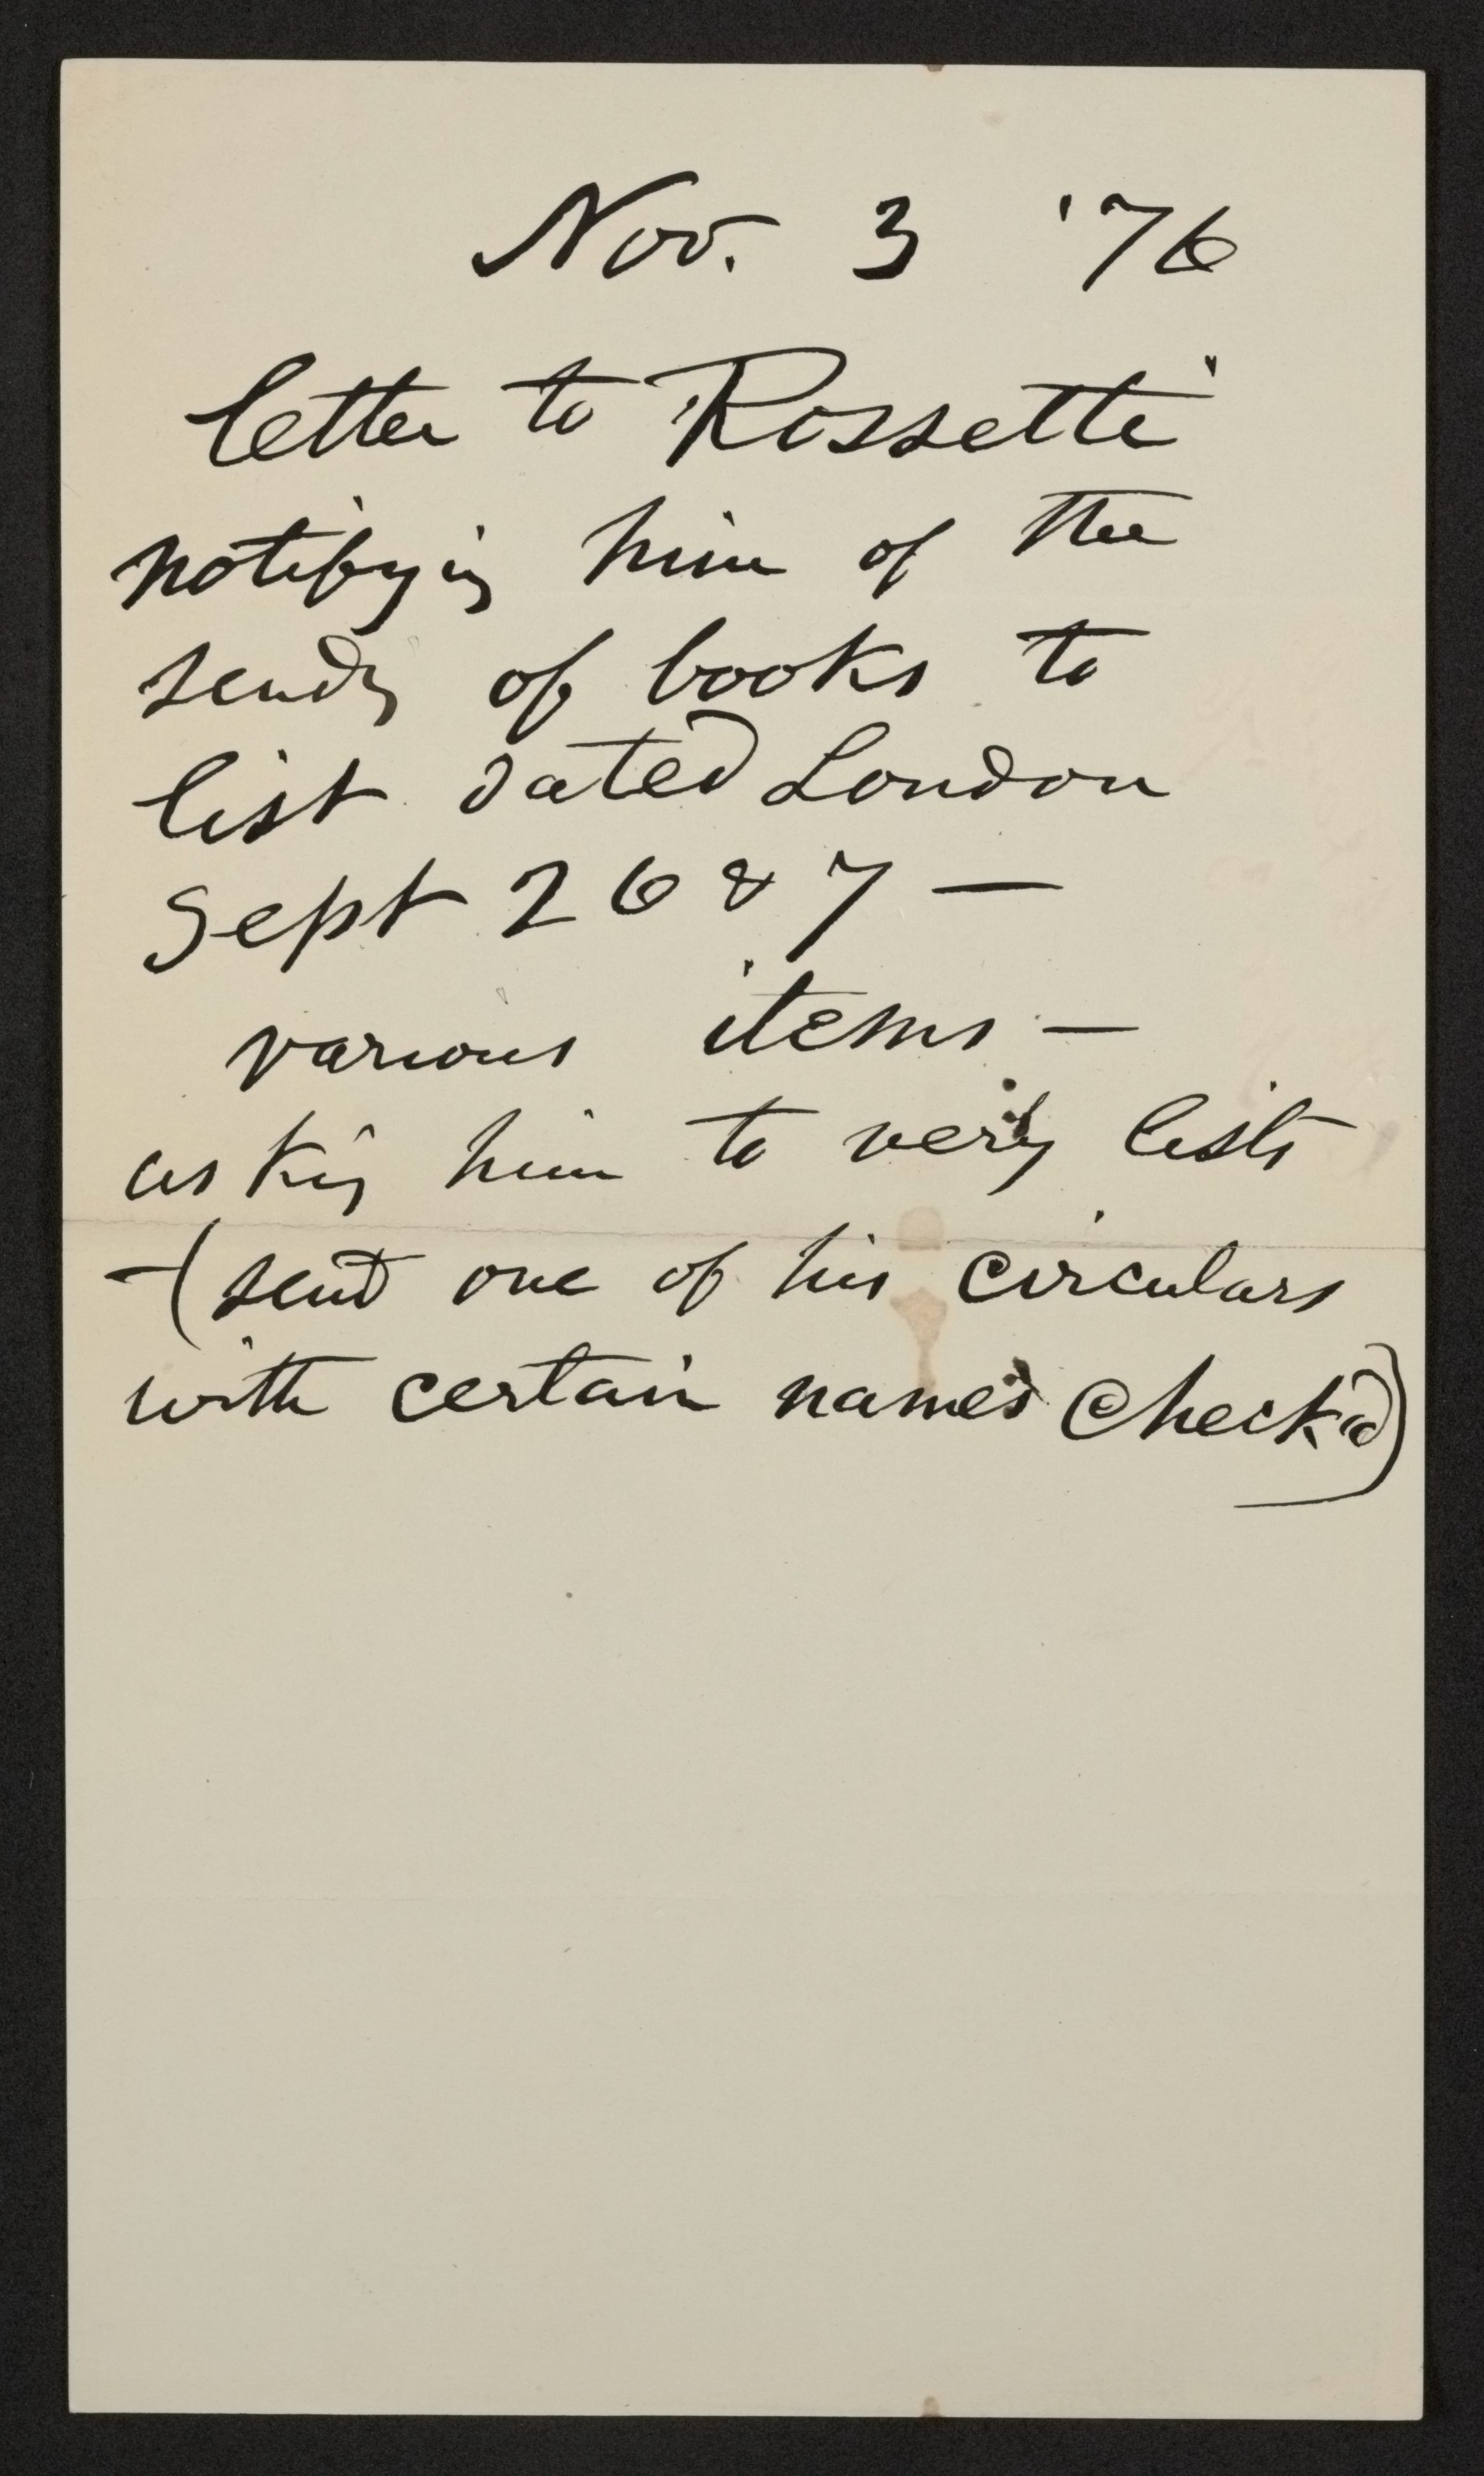 Nov. 3 '76
letter to Rossetti
notifying him of the
sendg of books to
list dated London
Sept 26 & 7 —
various items —
asking him to very lists
— (send one of his circulars
with certain names check'd)